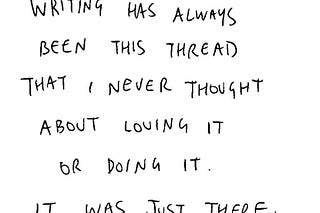 WRITING HAS ALWAYS
BEEN THIS THREAD
THAT I NEVER THOUGHT
ABOUT LOVING IT
OR DOING IT.
IT WAS JUST THERE.